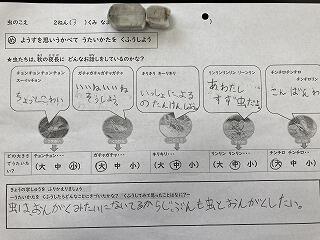 虫のこえ 2ねん(3)くみ な
め ようすを思いうかべて うたいかたを くふうしよう
★虫たちは、秋の夜長に どんなお話しをしているのかな?
チョンチョンチョンチョン
スーイッチョン
ガチャガチャガチャガチャ
キリキリ キーリキリ
リンリンリンリン リーンリン
チンチロチンチロ
チンチロリン
ちょっとこわい
いいねいいね
そうしよう
いっしょによる
のたんけんしよう
あわたし
すず虫だよ
こんばんわ
どの大きさ
でうたいた
い?
チョンチョン・・
(大 中 小)
ガチャガチャ・・
(大 中 小)
キリキリ・・
(大 中 小)
リンリンリンリン・・
(大 中 小)
チンチロチンチロ・・
(大 中 小)
きょうの学しゅうを ふりかえりましょう
虫はおんがくみたいにないてるからじぶんも虫とおんがくしたい。